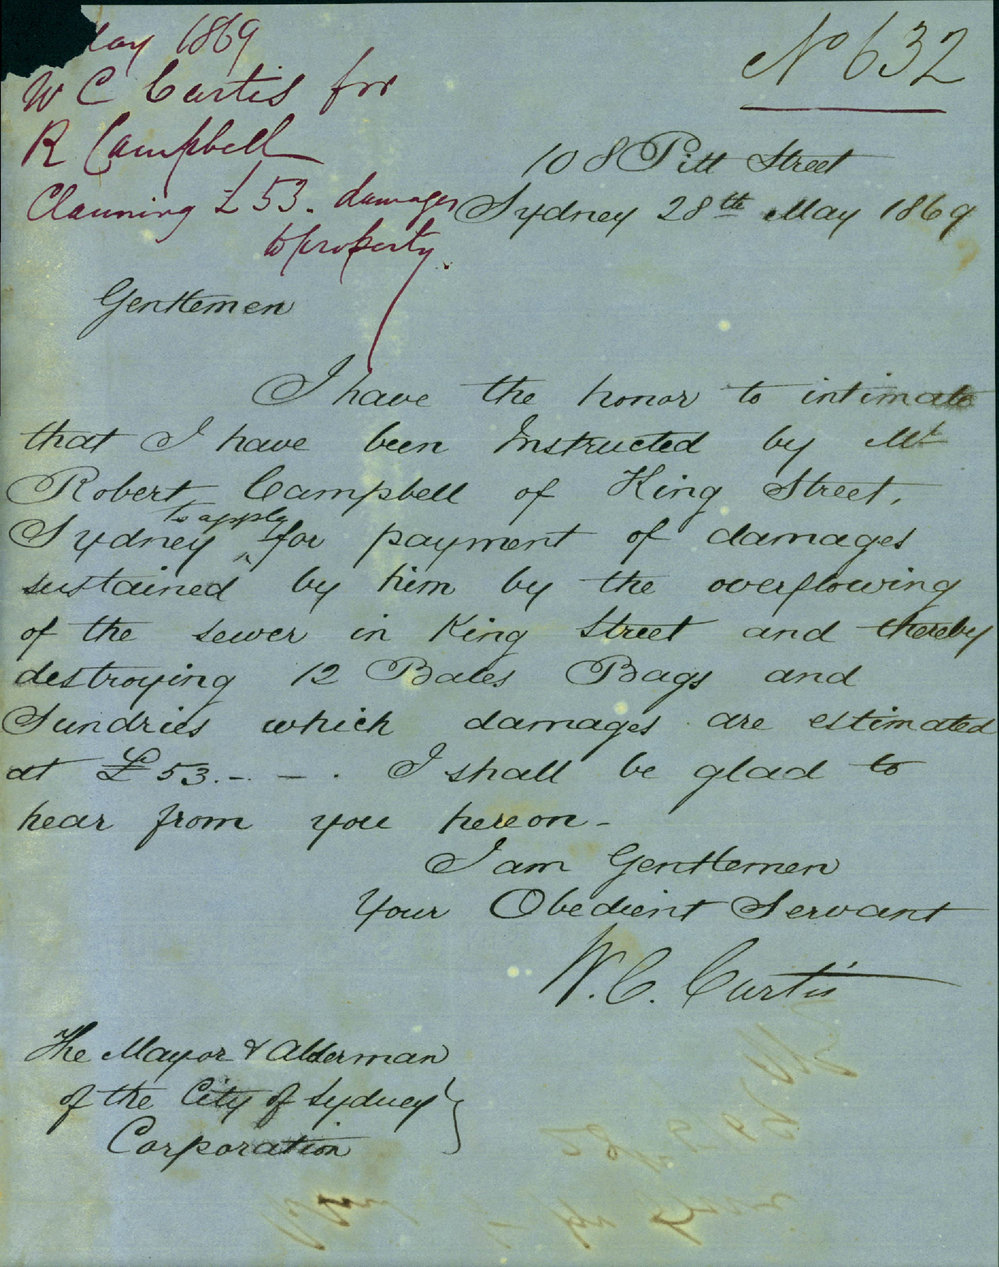 May 1869
W C Curtis for
R Campbell
Claiming £53. damages
to property.
No 632
108 Pitt Street
Sydney 28th May 1869
Gentlemen
I have the honor to intimate
that I have been Instructed by Mr
Robert Campbell of King Street,
to apply
Sydney ^ for payment of damages
sustained by him by the overflowing
of the sewer in King Street and thereby
destroying 12 Bales Bags and
Sundries which damages are estimated
at £53.-.-. I shall be glad to
hear from you hereon-
I am Gentlemen
Your Obedient Servant
W. C. Curtis
The Mayor & Alderman
of the City of Sydney }
Corporation